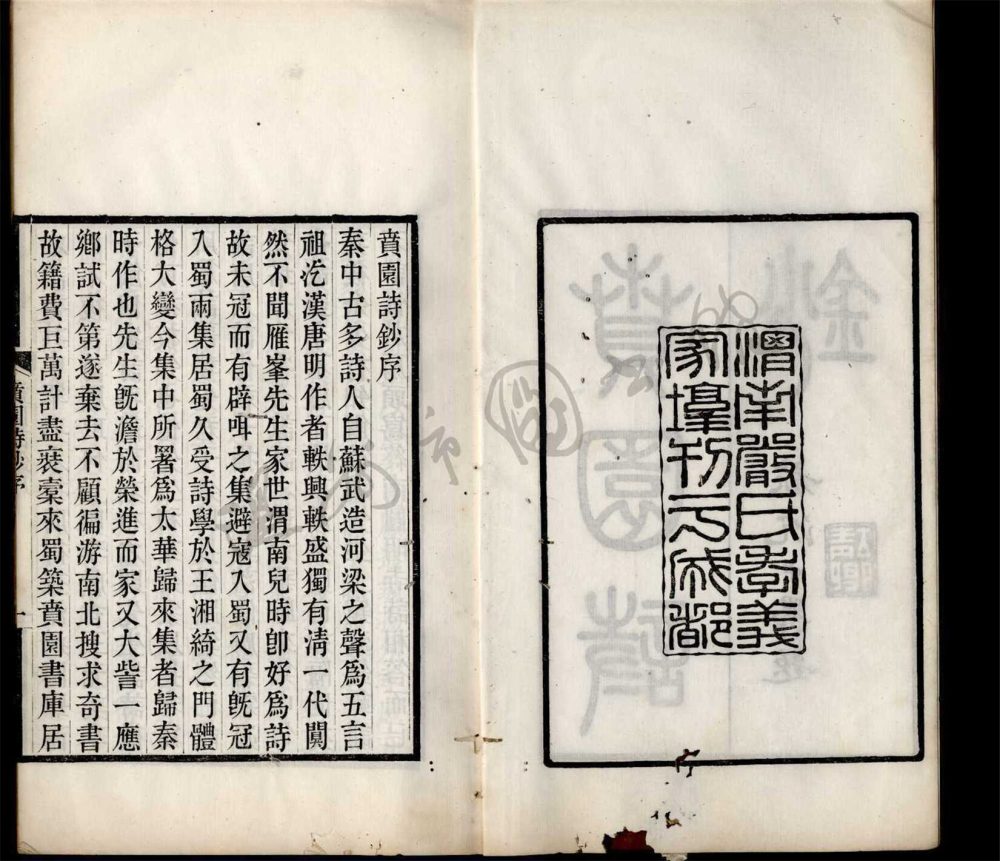 渭南嚴氏孝義
家塾刊于成都
賁園詩鈔序
秦中古多詩人自蘇武造河梁之聲爲五言
祖汔漢唐明作者軼興軼盛獨有淸一代闃
然不聞雁峯先生家世渭南兒時卽好爲詩
故未冠而有辟咡之集避寇入蜀又有旣冠
入蜀兩集居蜀久受詩學於王湘綺之門體
格大變今集中所署爲太華歸來集者歸秦
時作也先生旣澹於榮進而家又大訾一應
鄉試不第遂棄去不顧徧游南北搜求奇書
故籍費巨萬計盡裒橐來蜀築賁園書庫居
賁園詩鈔序
一